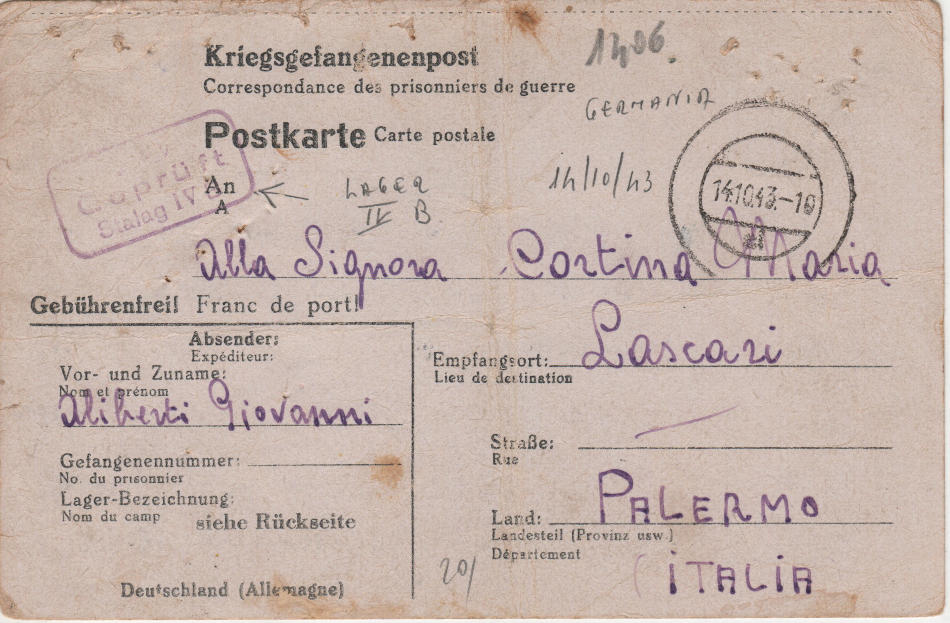 Kriegsgefangenenpost
1206
Correspondance des prisonniers de guerre
GERMANIA
Postkarte Carte postale
Geprüft
Stalag IV B
An
A
LAGER
IV B.
14/10/43
14.10.43.-18
Alla Signora Cortina Maria
Gebührenfrei! Franc de port!
Lascari
Absender:
Expéditeur:
Vor- und Zuname:
Nom et prénom
Aliberti Giovanni
Gefangenennummer:
No. du prisonnier
Lager-Bezeichnung:
Nom du camp
siehe Rückseite
Deutschland (Allemagne)
Empfangsort:
Lieu de destination
Straße:
Rue
PALERMO
Land:
Landesteil (Provinz usw.)
Département
(ITALIA
20/